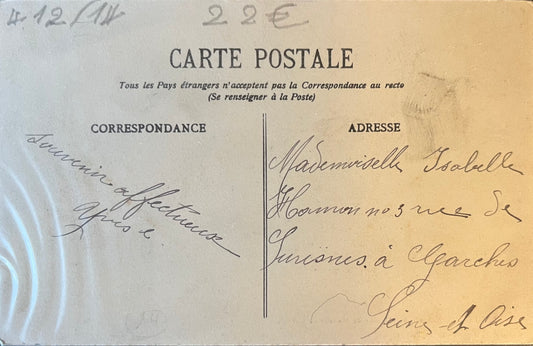 412/14 22€
CARTE POSTALE
Tous les Pays étrangers n'acceptent pas la Correspondance au recto
(Se renseigner à la Poste)
CORRESPONDANCE
Souvenir affectueux
ADRESSE
Mademoiselle Isabelle
no 3 rue de
Suresnes à Garches
Seine et Oise